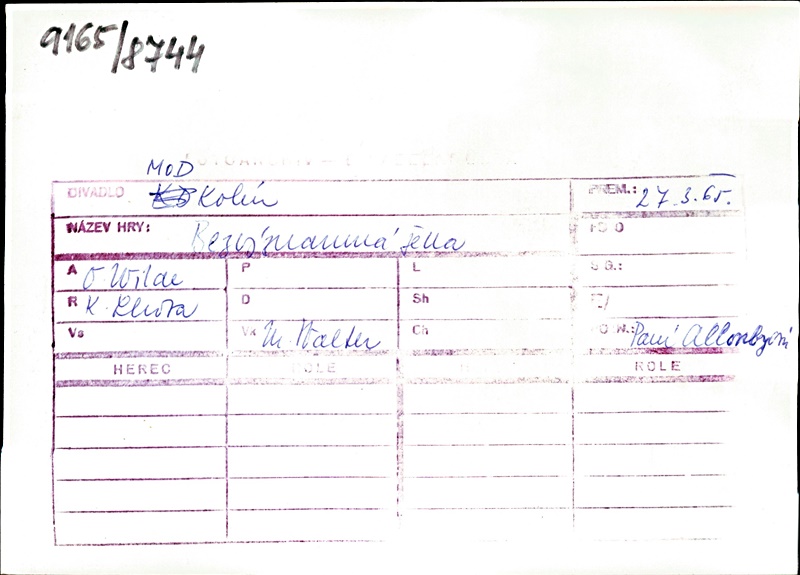 9165/8744
MOD
DIVADLO Kolín PREM.: 27.3.65.
NÁZEV HRY: Bezvýznamná žena
A O. Wilde P L
R K. Lhota D Sh
Vs Vk M. Walter Ch Paní Allonbyová
HEREC ROLE ROLE